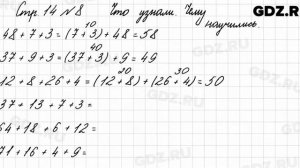 Стр. 14 №8 Что узнали. Чему научились
GDZ.RU
10
48 + 7 + 3 = (7 + 3) + 48 = 58
40
37 + 9 + 3 = (37 + 3) + 9 = 49
20 30
12 + 8 + 26 + 4 = (12 + 8) + (26 + 4) = 50
37 + 13 + 7 + 3 =
64 + 18 + 6 + 12 =
71 + 16 + 4 + 9 =